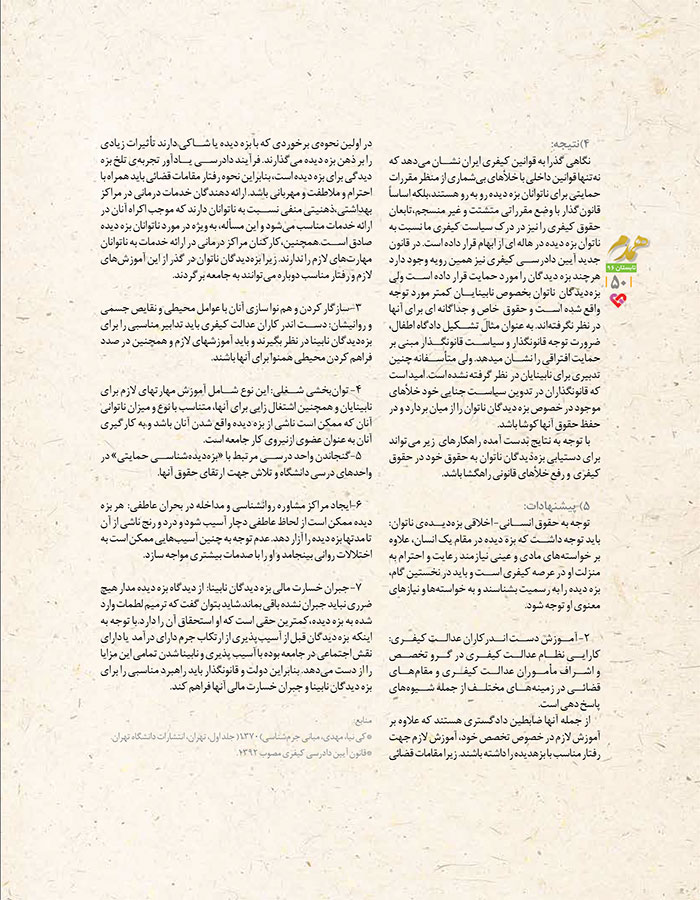 ۴)نتیجه:
نگاهی گذرا به قوانین کیفری ایران نشان می‌دهد که
نه‌تنها قوانین داخلی با خلأهای بی‌شماری از منظر مقررات
حمایتی برای ناتوانان بزه دیده رو به رو هستند،بلکه اساساً
قانون گذار با وضع مقرراتی متشتت و غیر منسجم،تابعان
حقوق کیفری را نیز در درک سیاست کیفری ما نسبت به
ناتوان بزه دیده در هاله ای از ابهام قرار داده است. در قانون
جدید آیین دادرسی کیفری نیز همین رویه وجود دارد
هرچند بزه دیدگان را مورد حمایت قرار داده است ولی
بزه‌دیدگان ناتوان بخصوص نابینایان کمتر مورد توجه
واقع شده است و حقوق خاص و جداگانه ای برای آنها
در نظر نگرفته‌اند. به عنوان مثال تشکیل دادگاه اطفال،
ضرورت توجه قانونگذار و سیاست قانونگذار مبنی بر
حمایت افتراقی را نشان میدهد. ولی متأسفانه چنین
تدبیری برای نابینایان در نظر گرفته نشده است. امید است
که قانونگذاران در تدوین سیاست جنایی خود خلأهای
موجود در خصوص بزه دیدگان ناتوان را از میان بردارد و در
حفظ حقوق آنها کوشا باشد.
با توجه به نتایج بدست آمده راهکارهای زیر می‌تواند
برای دستیابی بزه‌دیدگان ناتوان به حقوق خود در حقوق
کیفری و رفع خلأهای قانونی راهگشا باشد.
۵) پیشنهادات:
توجه به حقوق انسانی-اخلاقی بزه‌دیده‌ی ناتوان:
باید توجه داشت که بزه دیده در مقام یک انسان، علاوه
بر خواسته‌های مادی و عینی نیازمند رعایت و احترام به
منزلت او در عرصه کیفری است و باید در نخستین گام،
بزه دیده را به رسمیت بشناسند و به خواسته‌ها و نیازهای
معنوی او توجه شود.
۲- آموزش دست اندرکاران عدالت کیفری:
کارایی نظام عدالت کیفری در گرو تخصص
و اشراف مأموران عدالت کیفری و مقام‌های
قضائی در زمینه‌های مختلف از جمله شیوه‌های
پاسخ دهی است.
از جمله آنها ضابطین دادگستری هستند که علاوه بر
آموزش لازم در خصوص تخصص خود، آموزش لازم جهت
رفتار مناسب با بزهدیده را داشته باشند. زیرا مقامات قضائی
در اولین نحوه‌ی برخوردی که با بزه دیده یا شاکی،دارند تأثیرات زیادی
را بر ذهن بزه دیده می گذارند. فرآیند دادرسی یادآور تجربه‌ی تلخ بزه
دیدگی برای بزه دیده است، بنابراین نحوه رفتار مقامات قضائی باید همراه با
احترام و ملاطفت و مهربانی باشد. ارائه دهندگان خدمات درمانی در مراکز
بهداشتی، ذهنیتی منفی نسبت به ناتوانان دارند که موجب اکراه آنان در
ارائه خدمات مناسب می‌شود و این مسأله، به ویژه در مورد ناتوانان بزه دیده
صادق است.همچنین، کارکنان مراکز درمانی در ارائه خدمات به ناتوانان
مهارت‌های لازم را ندارند. زیرا بزه‌دیدگان ناتوان در گذر از این آموزش‌های
لازم و رفتار مناسب دوباره می‌توانند به جامعه برگردند.
۳-سازگار کردن و هم‌نوا سازی آنان با عوامل محیطی و نقایص جسمی
و روانیشان: دست اندر کاران عدالت کیفری باید تدابیر مناسبی را برای
بزه‌دیدگان نابینا در نظر بگیرند و باید آموزشهای لازم و همچنین در صدد
فراهم کردن محیطی همنوا برای آنها باشند.
۴- توان‌بخشی شغلی: این نوع شامل آموزش مهارتهای لازم برای
نابینایان و همچنین اشتغال زایی برای آنها، متناسب با نوع و میزان ناتوانی
آنان که ممکن است ناشی از بزه دیده واقع شدن آنان باشد و به کارگیری
آنان به عنوان عضوی از نیروی کار جامعه است.
۵-گنجاندن واحد درسی مرتبط با «بزه‌دیده‌شناسی حمایتی» در
واحدهای درسی دانشگاه و تلاش جهت ارتقای حقوق آنها.
۶-ایجاد مراکز مشاوره روانشناسی و مداخله در بحران عاطفی: هر بزه
دیده ممکن است از لحاظ عاطفی دچار آسیب شود و درد و رنج ناشی از آن
تا مدتها بزه دیده را آزار دهد. عدم توجه به چنین آسیب‌هایی ممکن است به
اختلالات روانی بینجامد و او را با صدمات بیشتری مواجه سازد.
۷-جبران خسارت مالی بزه دیدگان نابینا: از دیدگاه بزه دیده مدار هیچ
ضرری نباید جبران نشده باقی بماند.شاید بتوان گفت که ترمیم لطمات وارد
شده به بزه دیده، کمترین حقی است که او استحقاق آن را دارد.با توجه به
اینکه بزه دیدگان قبل از آسیب‌پذیری از ارتکاب جرم دارای درآمد یا دارای
نقش اجتماعی در جامعه بوده با آسیب پذیری و نابینا شدن تمامی این مزایا
را از دست می‌دهد. بنابراین دولت و قانونگذار باید راهبرد مناسبی را برای
بزه دیدگان نابینا و جبران خسارت مالی آنها فراهم کند.
منابع:
*کی نیا، مهدی، مبانی جرم‌شناسی) ۱۳۷۰( جلد اول، تهران، انتشارات دانشگاه تهران.
*قانون آیین دادرسی کیفری مصوب ۱۳۹۲.
همدم
تابستان ۹۶
۵۰